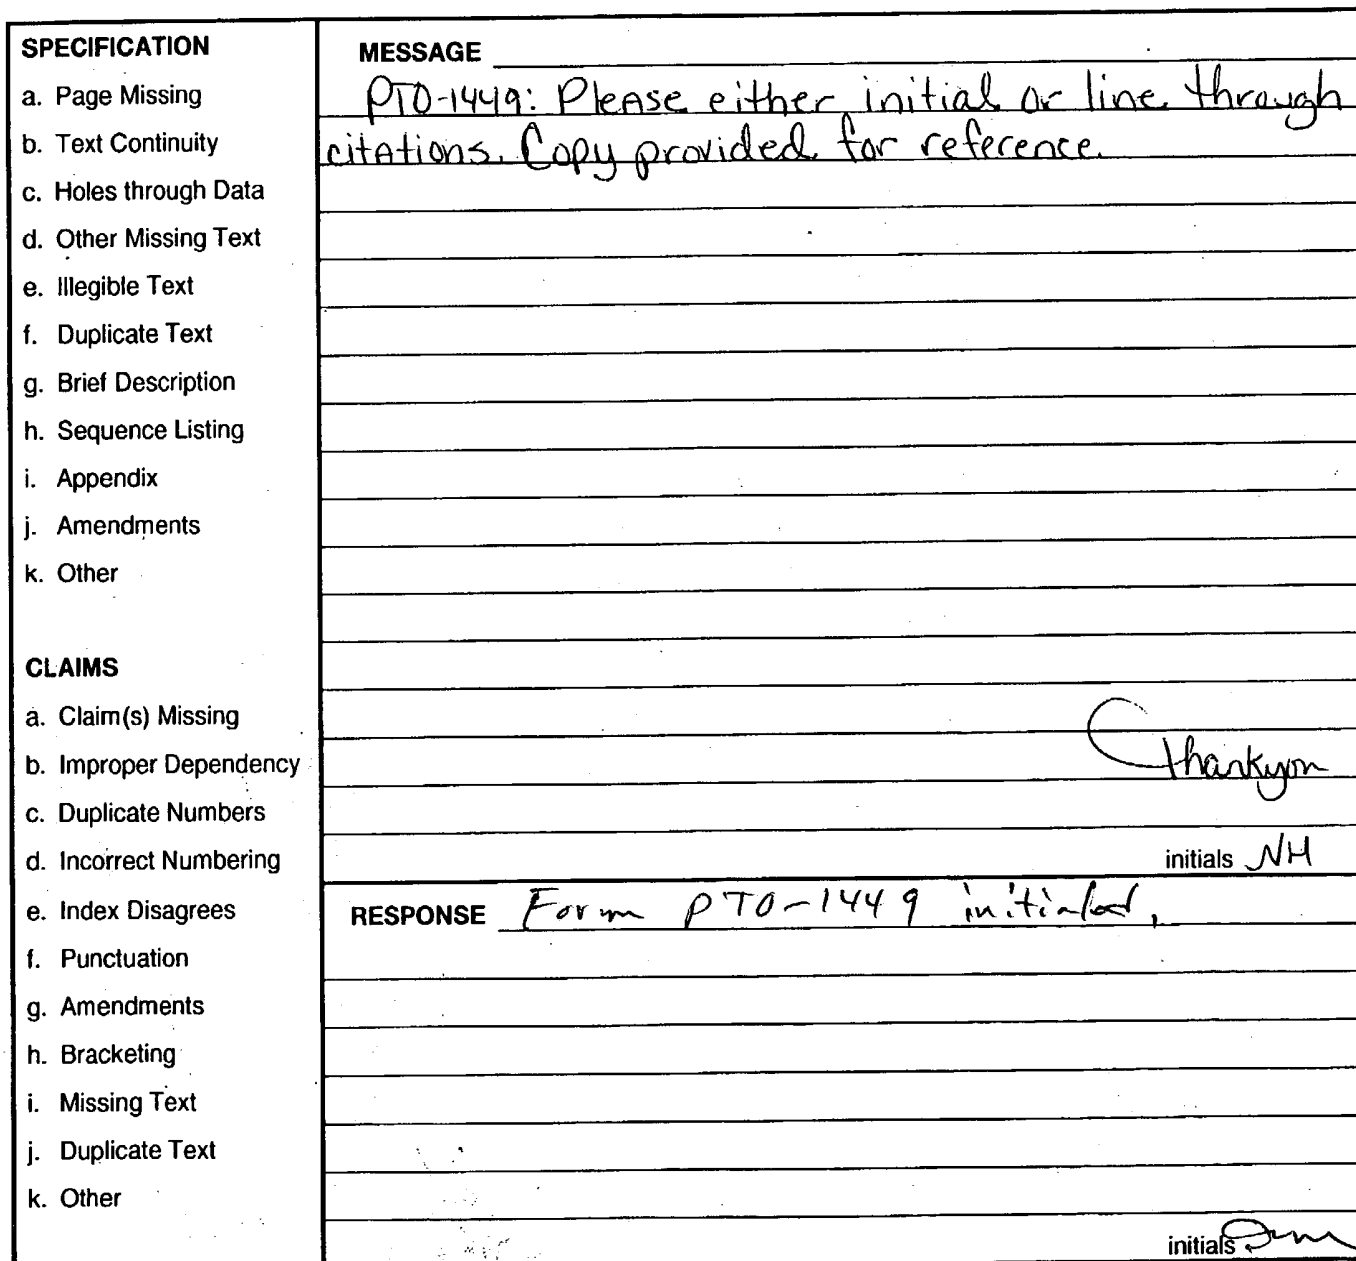 SPECIFICATION
a. Page Missing
b. Text Continuity
c. Holes through Data
d. Other Missing Text
e. Illegible Text
f. Duplicate Text
g. Brief Description
h. Sequence Listing
i. Appendix
j. Amendments
k. Other
CLAIMS
a. Claim(s) Missing
b. Improper Dependency
c. Duplicate Numbers
d. Incorrect Numbering
e. Index Disagrees
f. Punctuation
g. Amendments
h. Bracketing
i. Missing Text
j. Duplicate Text
k. Other
MESSAGE
PTO-1449: Please either initial or line through
citations. Copy provided for reference.
Thankyou
initials NH
RESPONSE Form PTO-1449 initialed.
initials